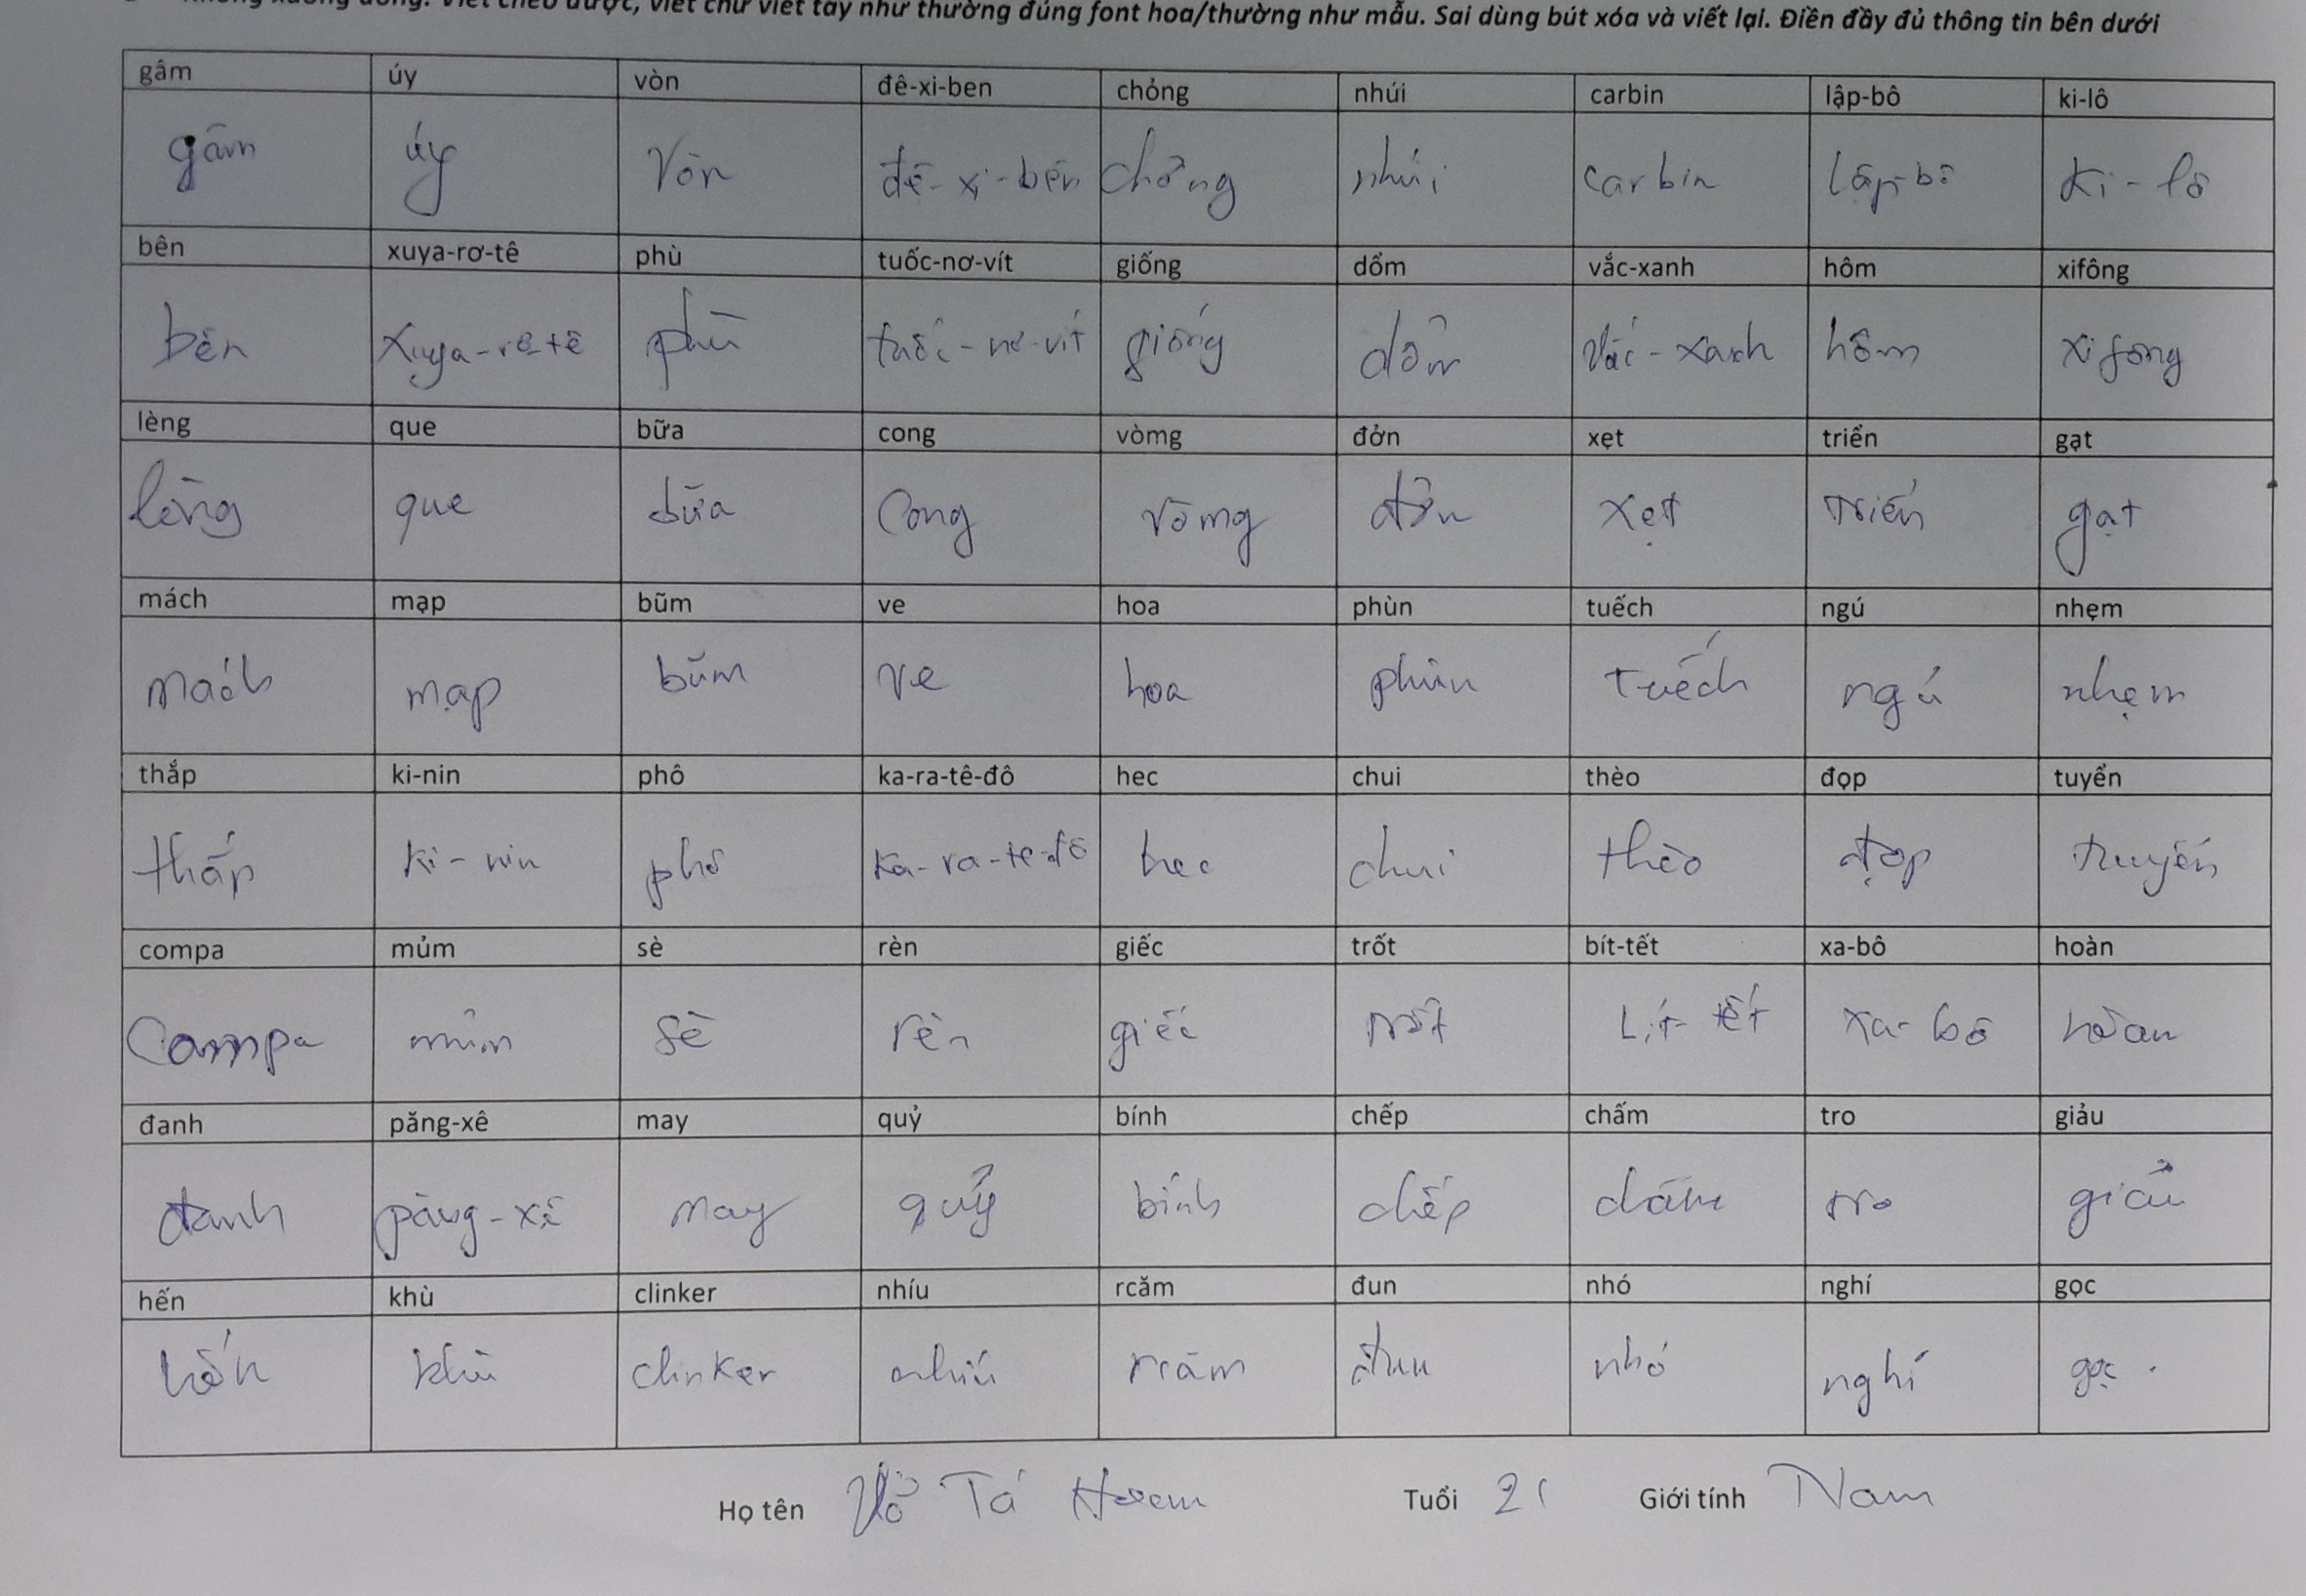 không xuống dòng. Viết chéo được, viết chữ viết tay như thường đúng font hoa/thường như mẫu. Sai dùng bút xóa và viết lại. Điền đầy đủ thông tin bên dưới
gâm úy vòn đê-xi-ben chỏng nhúi carbin lập-bô ki-lô
gâm úy vòn đê-xi-bên chỏng nhúi carbin lập-bô ki-lô
bên xuya-rơ-tê phù tuốc-nơ-vít giống dổm vắc-xanh hôm xifông
bên xuya-rơ-tê phù tuốc-nơ-vít giống dổm vắc-xanh hôm xifông
lèng que bữa cong vòmg đởn xẹt triển gạt
lèng que bữa cong vòmg đởn xẹt triển gạt
mách mạp bũm ve hoa phùn tuếch ngú nhẹm
mách mạp bũm ve hoa phùn tuếch ngú nhẹm
thắp ki-nin phô ka-ra-tê-đô hec chui thèo đọp tuyển
thắp ki-nin phô ka-ra-tê-đô hec chui thèo đọp tuyển
compa mủm sè rèn giếc trốt bít-tết xa-bô hoàn
compa mủm sè rèn giếc trốt bít-tết xa-bô hoàn
đanh păng-xê may quỷ bính chếp chấm tro giảu
đanh păng-xê may quỷ bính chếp chấm tro giảu
hến khù clinker nhíu rcăm đun nhó nghí gọc
hến khù clinker nhíu rcăm đun nhó nghí gọc
Họ tên Võ Tá Tuổi 21 Giới tính Nam